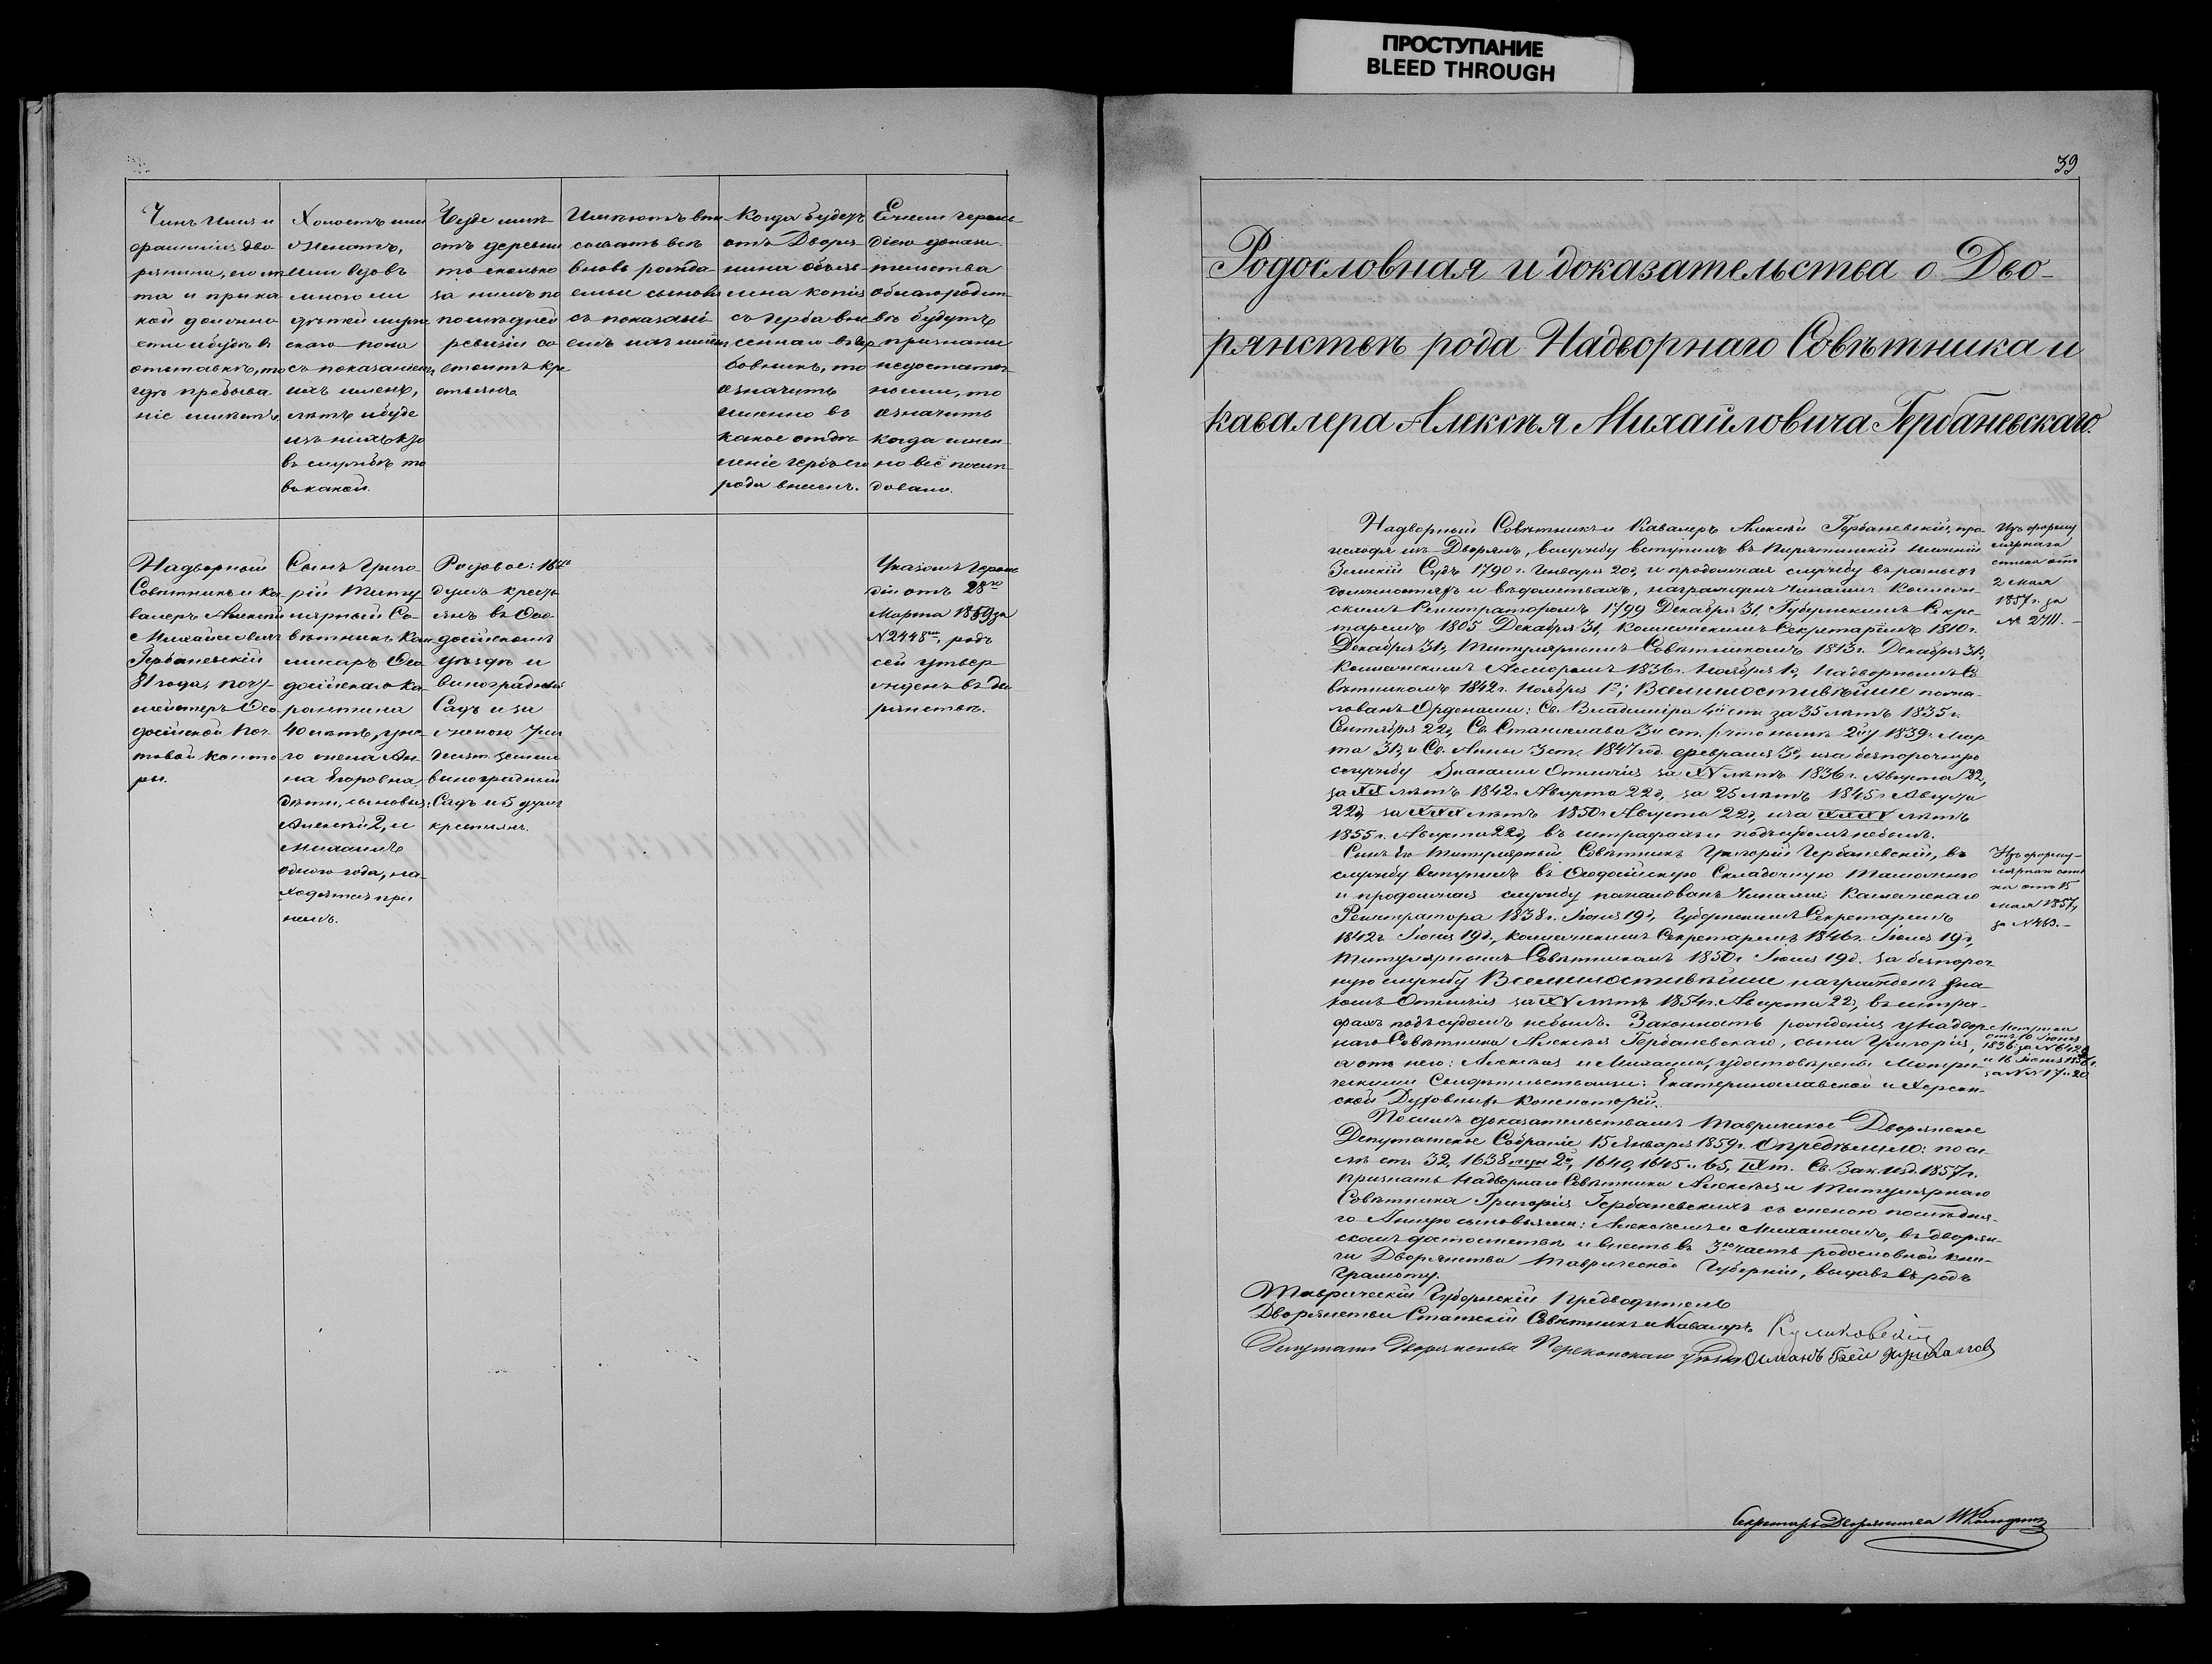 ПРОСТУПАНИЕ
BLEED THROUGH
Чинъ Имя и
фамилія дво-
рянина, его лѣ-
та и при ка-
кой должно-
сти и будѣ въ
отставкѣ, то
гдѣ пребыва-
ніе имѣетъ.
Холостъ или
Женатъ,
или вдовъ
много ли
дѣтей муже
скаго пола
съ показаніемъ
ихъ именъ,
лѣтъ и буде
изъ нихъ кто
въ службѣ то
въ какой.
Буде имѣ-
етъ деревни
то сколько
за нимъ по
послѣдней
ревизіи со-
стоитъ кре
стьянъ.
Имѣютъ впи-
сывать всѣ
вновь рожда-
емые сыновья
съ показані-
емъ ихъ имянъ
Когда будетъ
отъ Дворя-
нина объяв-
лена копія
съ герба вне-
сеннаго въ гер-
бовникъ, то
означить
именно въ
какое отдѣ-
леніе гербъ его
рода внесенъ.
Ежели героль-
діею доказа-
тельства
облагородит-
въ будутъ
признаны
недостаточ-
ными, то
означить
когда имен-
но всё послѣ-
довало.
Надворный
Совѣтникъ и Ка-
валеръ Алексѣй
Михайловичъ
Гербаневскій
81 года, почт-
мейстеръ Ѳео-
досійской Поч-
товой конто
ры.
Сынъ Григо
рій Титу
лярный Со-
вѣтникъ Ком-
мисаръ Ѳео-
досійскаго Ка-
рантина
40 лѣтъ, у не-
го жена Ан-
на Егоровна,
дѣти, сыновья:
Алексѣй 2, и
Михаилъ
одного года, на-
ходятся при
немъ.
Родовое: 16ть
душъ кресть
янъ въ Ѳео-
досійскомъ
уѣздѣ и
виноградный
Садъ и за
женою 7ми
десят. земли
виноградный
Садъ и 5 душъ
крестьянъ.
Указомъ Героль
діи отъ 28го
Марта 1859 за
№ 2448мъ, родъ
сей утвер-
жденъ въ дво
рянствѣ.
39
Родословная и доказательства о Дво-
рянствѣ рода Надворнаго Совѣтника и
кавалера Алексѣя Михайловича Гербаневскаго.
Надворный Совѣтникъ и Кавалеръ Алексѣй Гербаневскій, про-
исходя изъ Дворянъ, въ службу вступилъ въ Пирятинскій Нижній
Земскій Судъ 1790 г. Января 20д, и продолжая службу въ разныхъ
должностяхъ и вѣдомствахъ, награжденъ Чинами: Коллеж-
скимъ Регистраторомъ 1799 Декабря 31, Губернскимъ Секре-
таремъ 1805 Декабря 31, Коллежскимъ Секретаремъ 1810 г.
Декабря 31, Титулярнымъ Совѣтникомъ 1813 г. Декабря 31,
Коллежскимъ Ассесоромъ 1836 г. Ноября 1, Надворнымъ Со-
вѣтникомъ 1842 г. Ноября 1го; Всемилостивѣйше пожа-
лованъ Орденами: Св. Владиміра 4й ст. за 35 лѣтъ 1835 г.
Сентября 22д, Св. Станислава 3й ст. (что нынѣ 2й) 1839 г. Мар-
та 31, и Св. Анны 3 ст. 1847 год. Февраля 3д, и за безпорочную
службу Знаками Отличія за XV лѣтъ 1836 г. Августа 22,
за XX лѣтъ 1842 г. Августа 22д, за 25 лѣтъ 1845 г. Августа
22д, за XXX лѣтъ 1850 г. Августа 22д, и за XXXV лѣтъ
1855 г. Августа 22д, въ штрафахъ и подъ судомъ небылъ.
Сынъ Его Титулярный Совѣтникъ Григорій Гербаневскій, въ
службу вступилъ въ Ѳеодосійскую Складочную Таможню
и продолжая службу пожалованъ Чинами: Коллежскаго
Регистратора 1838 г. Іюня 19д, Губернскимъ Секретаремъ
1842 г. Іюня 19д, Коллежскимъ Секретаремъ 1846 г. Іюня 19д,
Титулярнымъ Совѣтникомъ 1850 г. Іюня 19д. за безпороч-
ную службу Всемилостивѣйше награжденъ Зна-
комъ Отличія за XV лѣтъ 1854 г. Августа 22д, въ штра-
фахъ подъ судомъ небылъ. Законность рожденія у Надвор-
наго Совѣтника Алексѣя Гербаневскаго, сына Григорія,
а отъ него: Алексѣя и Михаила, удостовѣрены Метри-
ческими Свидѣтельствами: Екатеринославской и Херсон-
ской Духовныхъ Консисторій.
По симъ доказательствамъ Таврическое Дворянское
Депутатское Собраніе 15 Января 1859 г. Опредѣлило: по си-
лѣ ст. 32, 1638 2й, 1640, 1645 и 65, IX т. Св. Зак. изд. 1857 г.
признать Надворнаго Совѣтника Алексѣя и Титулярнаго
Совѣтника Григорія Гербаневскихъ съ женою послѣдня-
го Анною сыновьями: Алексѣемъ и Михаиломъ, въ дворян-
скомъ достоинствѣ и внесть въ 3ю часть родословной кни-
ги Дворянства Таврической Губерніи, выдавъ въ родъ
грамоту.
Таврическій Губернскій Предводитель
Дворянства Статскій Совѣтникъ и Кавалеръ
Депутатъ Дворянства Перекопскаго Уѣзда Османъ Бей
Изъ форму
лярнаго
списка отъ
2 Мая
1857 г. за
№ 2711.
Изъ форму-
лярнаго спис
ка отъ 15
Мая 1857,
за № 463.
Метрики
отъ 10 Іюня
1836 за № 6428
и 16 Іюня 1858 г.
за №№ 17 и 20
Секретарь Дворянства